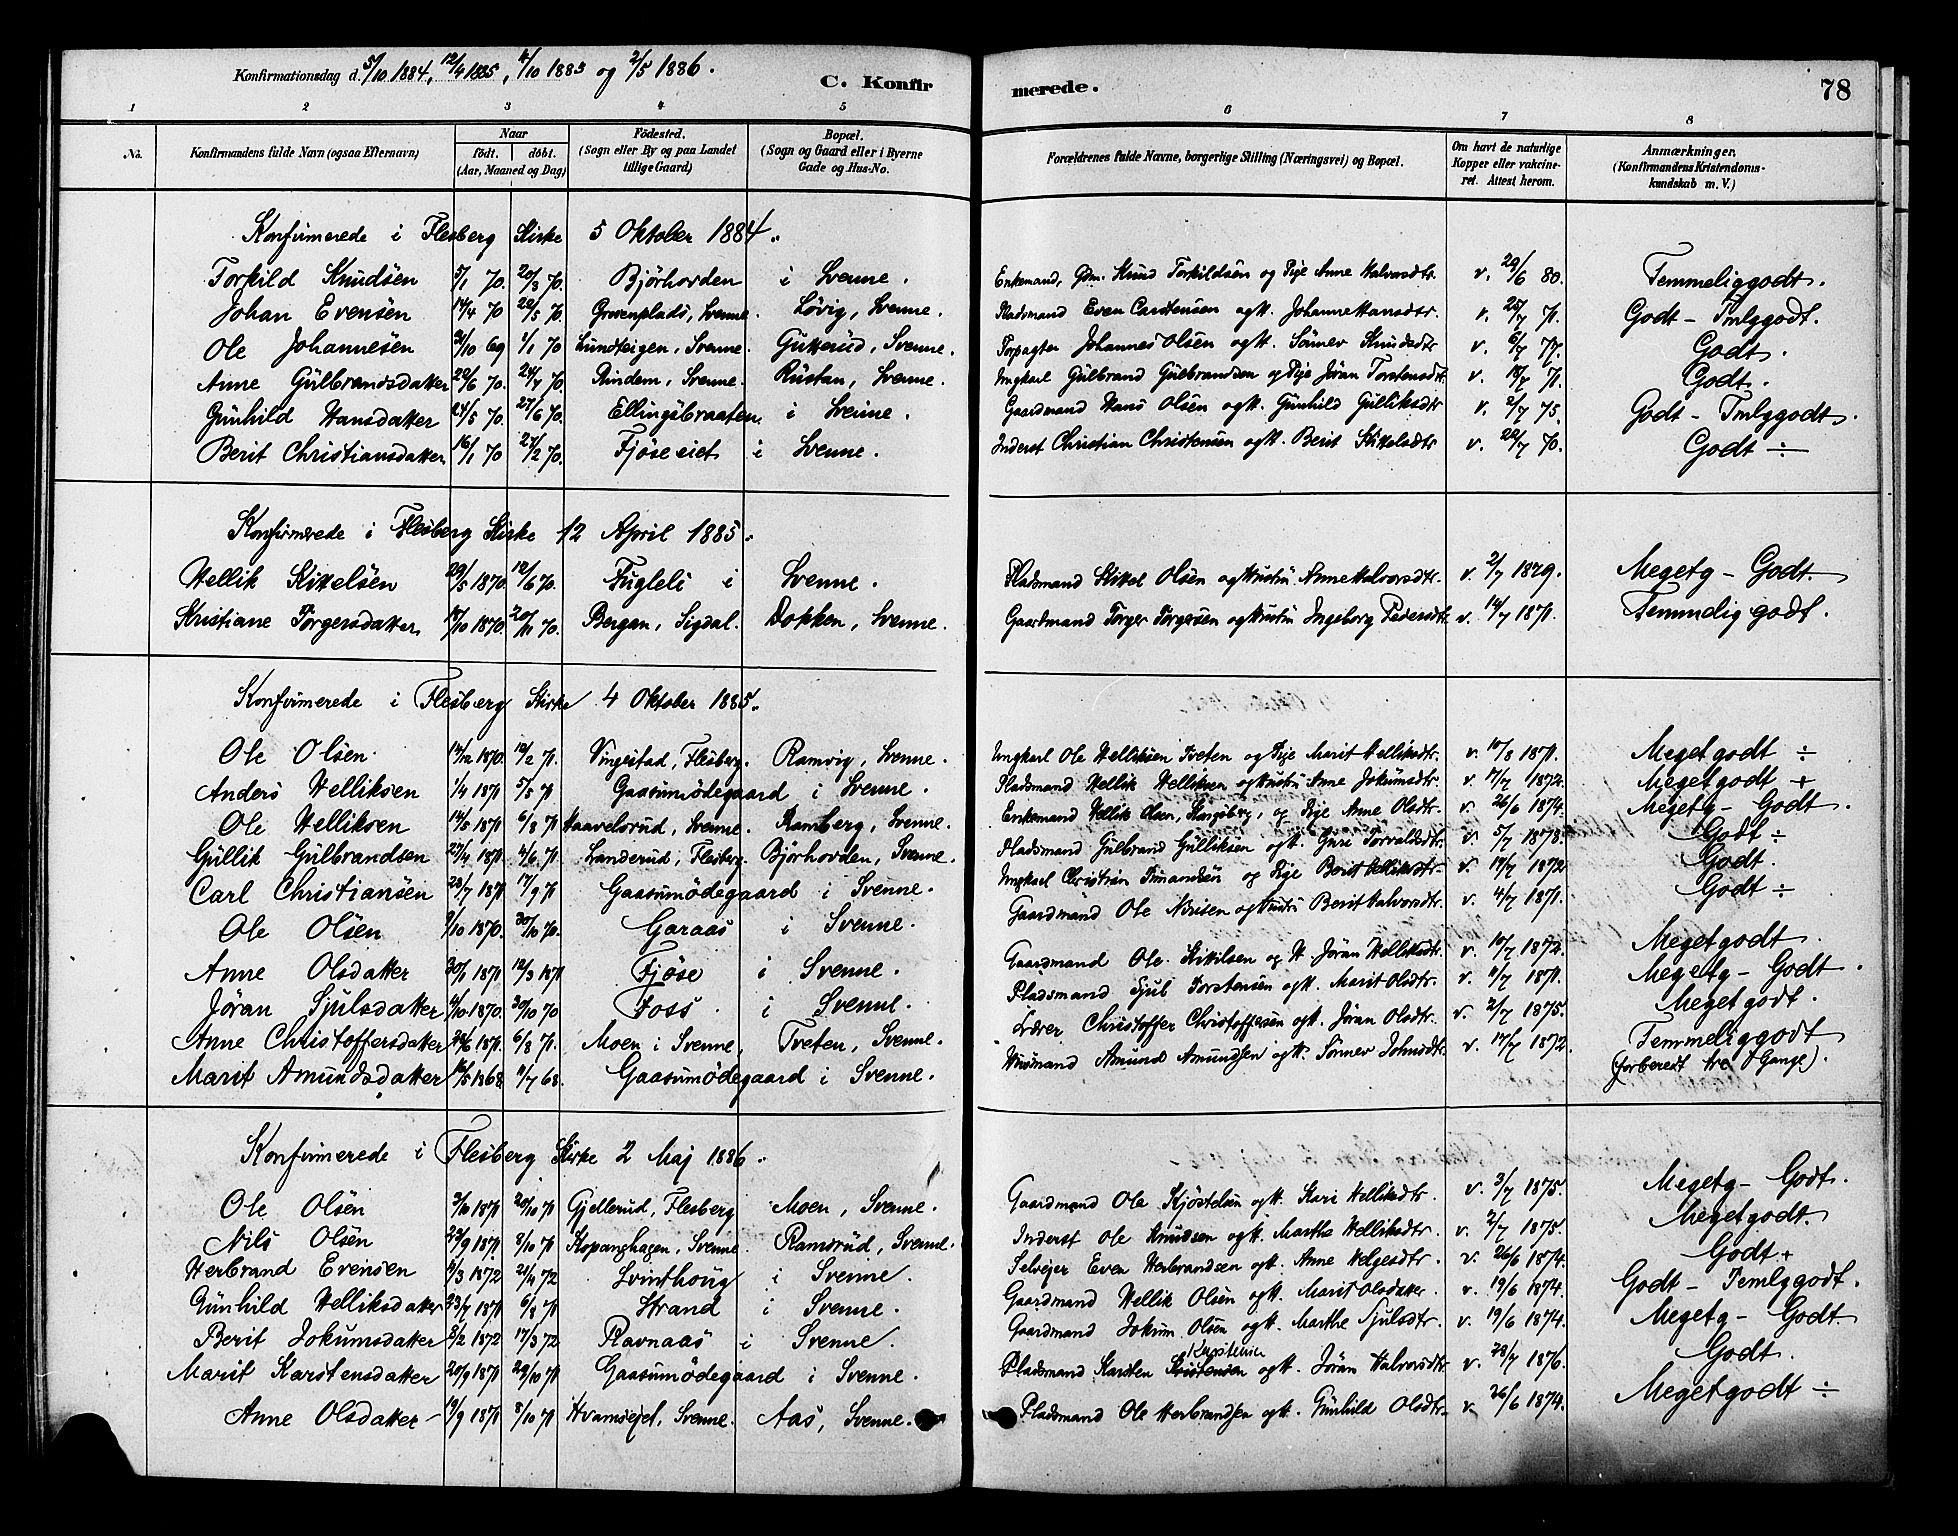 Konfirmationsdag d. 5/10 1884, 12/4 1885, 4/10 1885 og 2/5 1886.
C. Konfirmerede.
78
1 2 3 4 5 6 7 8
No. Konfirmandens fulde Navn (ogsaa Efternavn) Naar født. døbt. (Aar, Maaned og Dag) Fødested. (Sogn eller By og paa Landet tillige Gaard) Bopæl. (Sogn og Gaard eller i Byerne Gade og Hus-No. Forældrenes fulde Navne, borgerlige Stilling (Næringsvei) og Bopæl. Om havt de naturlige Kopper eller vakcineret. Attest herom. Anmærkninger. (Konfirmandens Kristendomskundskab m. V.)
Konfirmerede i Flesberg Kirke 5 Oktober 1884.
Torkild Knudsen 5/1 70. 20/3 70. Bjørhovden i Svenne. Enkemand, Gdm. Knud Torkildsen og Pige Anne Halvorsdtr. v. 29/6 80. Temmeliggodt.
Johan Evensen 14/4 70 22/5 70. Grovenplads, Svenne. Løvig, Svenne. Pladsmand Even Carstensen og H. Johanne Hansdtr. v. 25/7 71. Godt - Tmlggodt.
Ole Johannesen 31/10 69 1/1 70 Lundteigen, Svenne. Gutterud, Svenne. Forpagter Johannes Olsen og H. Sønnev Knudsdtr v. 6/7 77. Godt.
Anne Gulbrandsdatter 22/6 70. 24/7 70. Rindem, Svenne. Rustan, Svenne. Ungkarl Gulbrand Gulbrandsen og Pige Jøran Torstensdtr. v. 18/7 71. Godt.
Gunhild Hansdatter 24/5 70. 27/6 70. Ellingsbraaten i Svenne. Gaardmand Hans Olsen og H. Gunhild Gulliksdtr v. 2/7 75. Godt - Tmlggodt.
Berit Christiansdatter 16/1 70 27/2 70. Fjøseeiet i Svenne. Inderst Christian Christensen og H. Berit Kittelsdtr v. 22/7 70. Godt ÷
Konfirmerede i Flesberg Kirke 12 April 1885.
Hellik Kittelsen 29/5 1870. 12/6 70. Fugleli i Svenne. Pladsmand Kittel Olsen og Hustru Anne Halvorsdtr. v. 2/7 1879. Megetg - Godt.
Kristiane Torgersdatter 18/10 1870. 20/11 70. Bergan, Sigdal. Dokken, Svenne. Gaardmand Torger Torgersen og Hustru Ingeborg Pedersdtr. v. 14/7 1871. Temmelig godt.
Konfirmerede i Flesberg Kirke 4 Oktober 1885.
Ole Olsen 14/12 1870. 12/2 71. Vingestad, Flesberg. Ramvig, Svenne. Ungkarl Ole Helliksen Tveten og Pige Marit Helliksdtr. v. 10/8 1871. Megetgodt ÷
Anders Helliksen 1/4 1871 5/5 71 Gaasumødegaard i Svenne. Pladsmand Hellik Helliksen og Hustru Anne Jokumsdtr. v. 17/7 1872. Megetgodt +
Ole Helliksen 14/5 1871 6/8 71 Haavelsrud, Svenne. Ramberg, Svenne. Enkemand Hellik Olsen, Kongsberg, og Pige Anne Olsdtr. v. 26/6 1874. Megetg - Godt.
Gullik Gulbrandsen 27/4 1871 4/6 71 Landerud, Flesberg. Bjørhovden, Svenne. Pladsmand Gulbrand Gulliksen og H. Guri Torvaldsdtr. v. 5/7 1878. Godt ÷
Carl Christiansen 23/7 1871 17/9 71 Gaasumødegaard i Svenne. Ungkarl Christian Amandsen og Pige Berit Helliksdtr. v. 17/7 1872 Godt.
Ole Olsen 9/10 1870. 30/10 70. Garaas i Svenne. Gaardmand Ole Nirisen og Hustru Berit Halvorsdtr. v. 4/7 1871. Godt ÷
Anne Olsdatter 30/1 1871 12/3 1871 Fjøse i Svenne. Gaardmand Ole Kittilsen og H. Jøran Helliksdtr. v. 10/7 1872. Megetgodt.
Jøran Sjulsdatter 4/10 1870. 30/10 70 Foss i Svenne. Pladsmand Sjul Torstensen og H. Marit Olsdtr. v. 11/7 1871. Megetg - Godt.
Anne Christoffersdatter 24/6 1871. 6/8 71. Moen i Svenne. Tveten, Svenne. Lærer Christoffer Christoffersen og H. Jøran Olsdtr. v. 2/7 1875. Megetgodt.
Marit Amundsdatter 16/5 1868. 11/7 68. Gaasumødegaard i Svenne. Husmand Amund Amundsen og H. Sønnev Johnsdtr. v. 17/7 1872. Temmeliggodt
(forberedt tre Gange).
Konfirmerede i Flesberg Kirke 2 Maj 1886.
Ole Olsen 3/10 1871 20/10 71 Gjellerud, Flesberg Moen, Svenne. Gaardmand Ole Kjøstelsen og H. Kari Helliksdtr. v. 3/7 1875. Megetg - Godt.
Nils Olsen 23/9 1871. 8/10 71 Kopanghagen, Svenne. Ramsrud, Svenne. Inderst Ole Knudsen og H. Marthe Helliksdtr. v. 2/7 1875. Megetgodt.
Herbrand Evensen 11/3 1872 21/4 72 Svinthoug i Svenne. Selvejer Even Herbrandsen og H. Anne Helgesdtr. v. 26/6 1874. Godt +
Gunhild Helliksdatter 23/7 1871 6/8 71 Strand i Svenne. Gaardmand Hellik Olsen og H. Marit Olsdatter. v. 19/6 1874. Godt - Temlggodt.
Berit Jokumsdatter 2/2 1872 17/3 72 Ravnaas i Svenne. Gaardmand Jokum Olsen og H. Marthe Sjulsdtr. v. 19/6 1874. Megetg - Godt.
Marit Karstensdatter 20/9 1871 29/10 71 Gaasumødegaard i Svenne. Pladsmand Karsten Karstensen og H. Jøran Halvorsdtr. v. 28/7 1876. Godt.
Anne Olsdatter 19/9 1871 8/10 71 Hvamsejet, Svenne. Aas, Svenne. Pladsmand Ole Herbrandsen og H. Gunhild Olsdtr. v. 26/6 1874. Megetgodt ÷